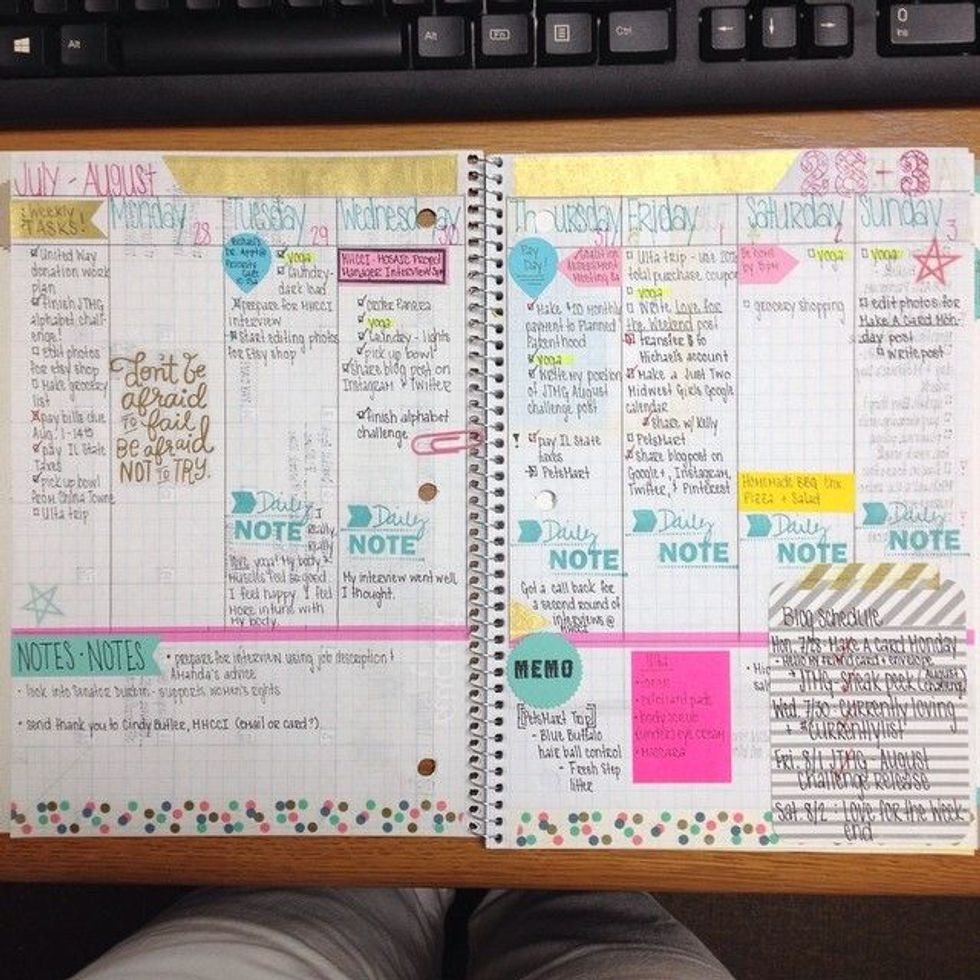 Alt
Alt
Fn
Ctrl
0
Ins
July - August
28 + 3
Weekly
TASKS!
United Way
donation work
plan
finish JTMG
alphabet chall-
enge!
edit photos
for Etsy shop
Make grocery
list
pay bills due
Aug. 1-14th
pay IL State
taxes
pick up bowl
from China Towne
Ulta trip
Monday
28
don't be
afraid
TO fail
BE afraid
NOT TO TRY.
Tuesday
29
yoga
Laundry-
dark load
prepare for HHCCI
interview
Start editing photos
for Etsy shop
Daily
NOTE
I
Really
Really
love yoga! My body &
muscles feel so good.
I feel happy. I feel
more in tune with
my body.
Wednesday
30
HHCCI - MOSAIC Project
Manager Interview
order Panera
yoga
Laundry - lights
pick up bowl
Share blog post on
Instagram & Twitter
finish alphabet
challenge
Daily
NOTE
My interview went well
I thought.
Thursday
31
Pay
Day!
Make $20 monthly
payment to Planned
Parenthood
yoga
Write my portion
of JTMG August
challenge post
! pay IL State
taxes
PetsMart
Daily
NOTE
Got a call back for
a second round of
interviews @
Friday
1
Ulta trip - use 20%
total purchase coupon
yoga
Write Love for
the Weekend post
transfer $ to
Michael's account
Make a Just Two
Midwest Girls Google
calendar
Share w/ Kelly
PetsMart
share blog post on
Google+, Instagram,
Twitter, & Pinterest
Daily
NOTE
Saturday
2
Be home
by 5pm
yoga
grocery shopping
Homemade BBQ Chx
Pizza + Salad
Daily
NOTE
Sunday
3
yoga
edit photos for
Make A Card Mon-
day post
write post
Daily
NOTE
NOTES · NOTES
• prepare for interview using job description +
Amanda's advice
- look into Senator Durbin - supports women's rights
• send thank you to Cindy Butler, HHCCI (email or card?)
MEMO
[PetsMart Trip]
- Blue Buffalo
hair ball control
- Fresh Step
litter
Ulta
- exfoliant pads
- body scrub
- under eye cream
- mascara
Blog Schedule
Mon. 7/28 - Make A Card Monday
+ JTMG - Sneak peek (August challenge)
Wed. 7/30 - currently loving
+ #currentlylist
Fri. 8/1 JTMG - August
challenge release
Sat. 8/2 : Love for the Week-
end